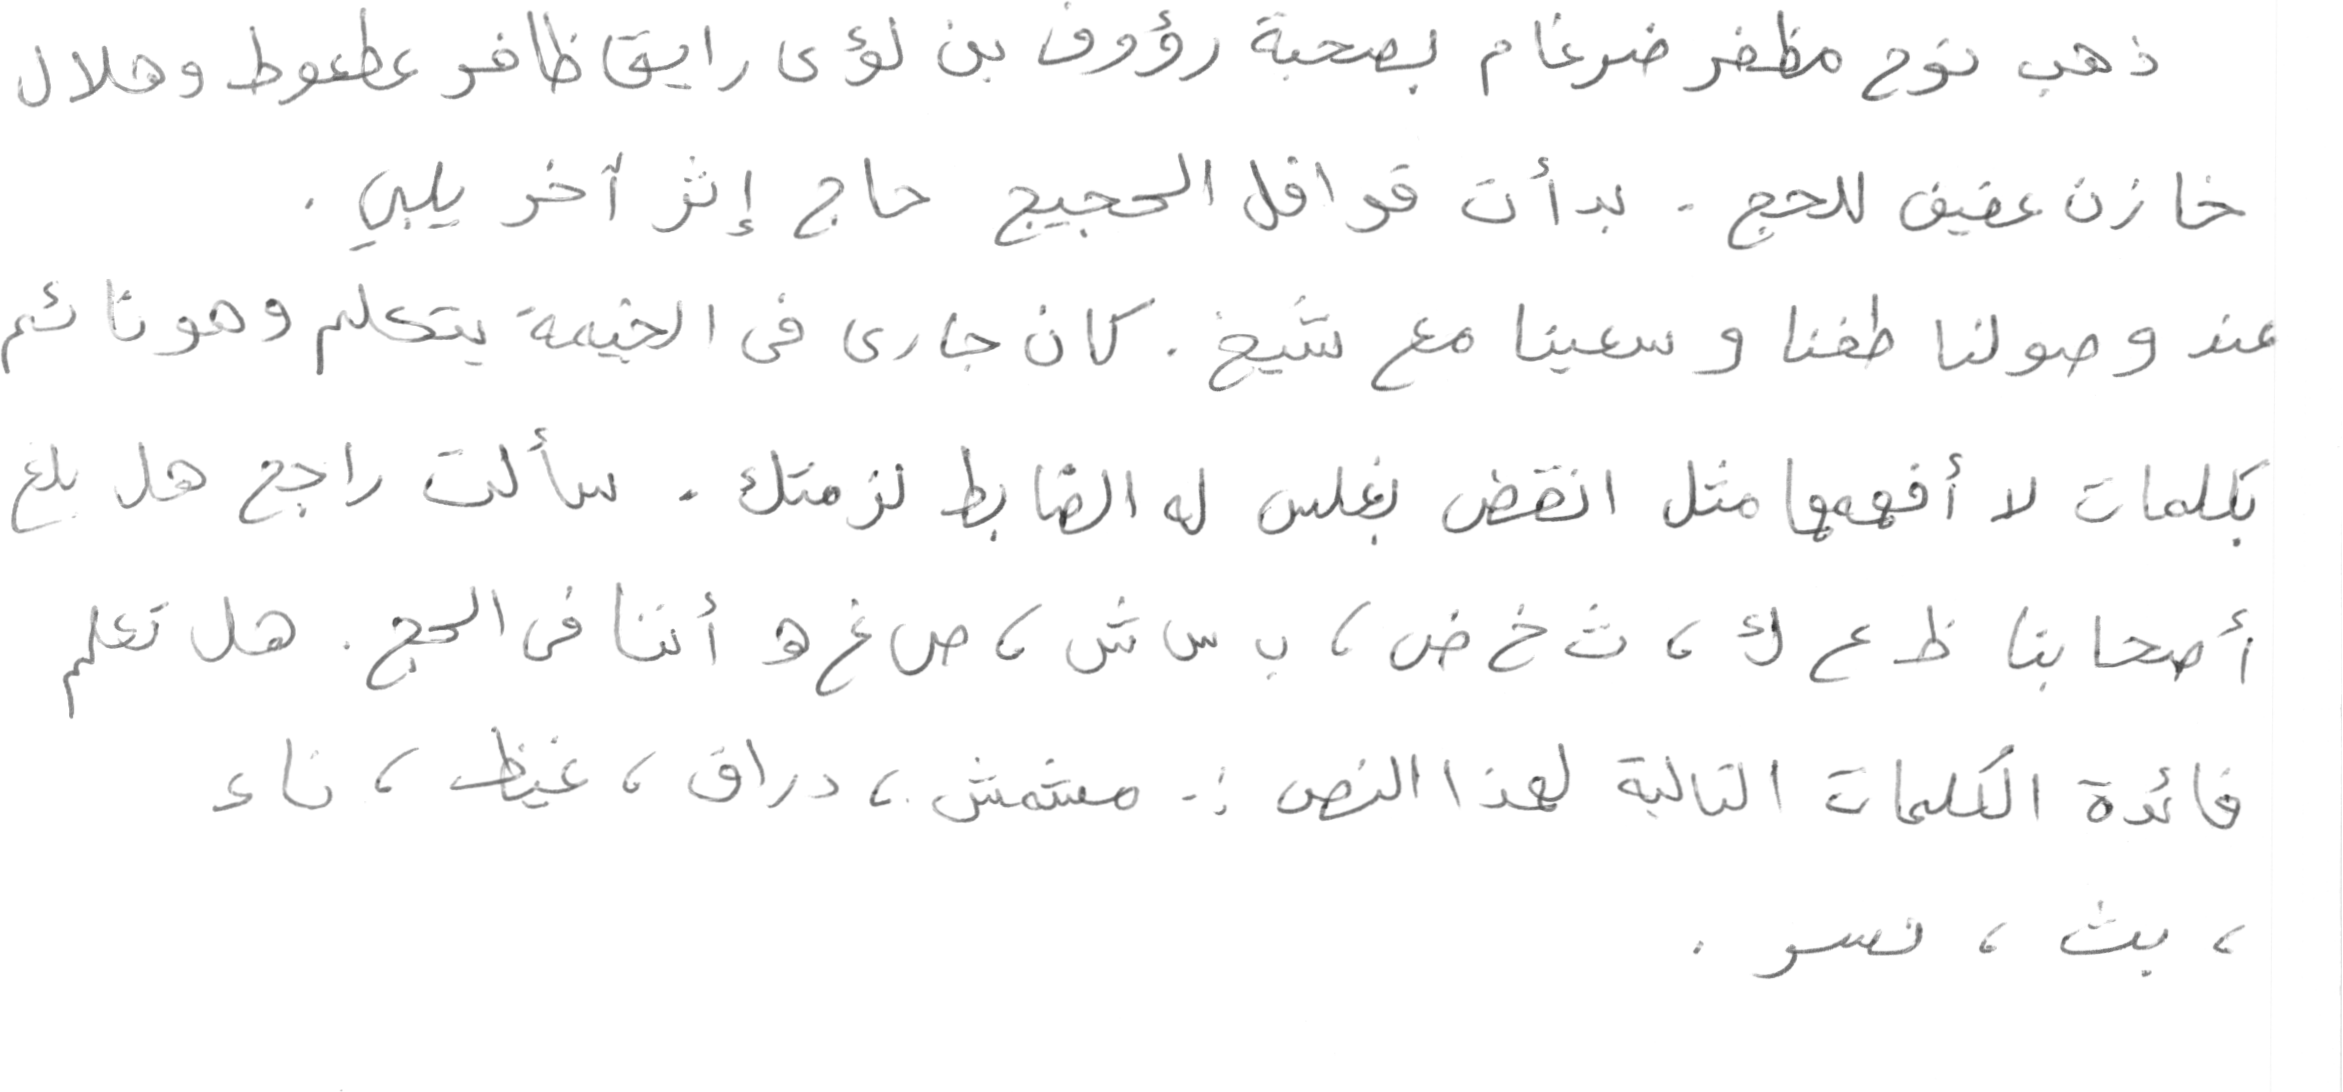 ذهب نوح مظفر ضرغام بصحبة رؤوف بن لؤى رايق ظافر عطعوط وهلال
خازن عفيف للحج . بدأت قوافل الحجيج حاج إثر آخر يلبي .
عند وصولنا طفنا وسعينا مع شيخ . كان جارى فى الخيمة يتكلم وهو نائم
بكلمات لا أفهمها مثل انقض بغلس له الضابط لزمتك . سألت راجح هل بلغ
أصحابنا ظ ع ك ، ث خ ض ، ب س ش ، ص غ ه أننا فى الحج . هل تعلم
فائدة الكلمات التالية لهذا النص :- مشمش ، دراق ، غيظ ، ناء
، بث ، نسر .